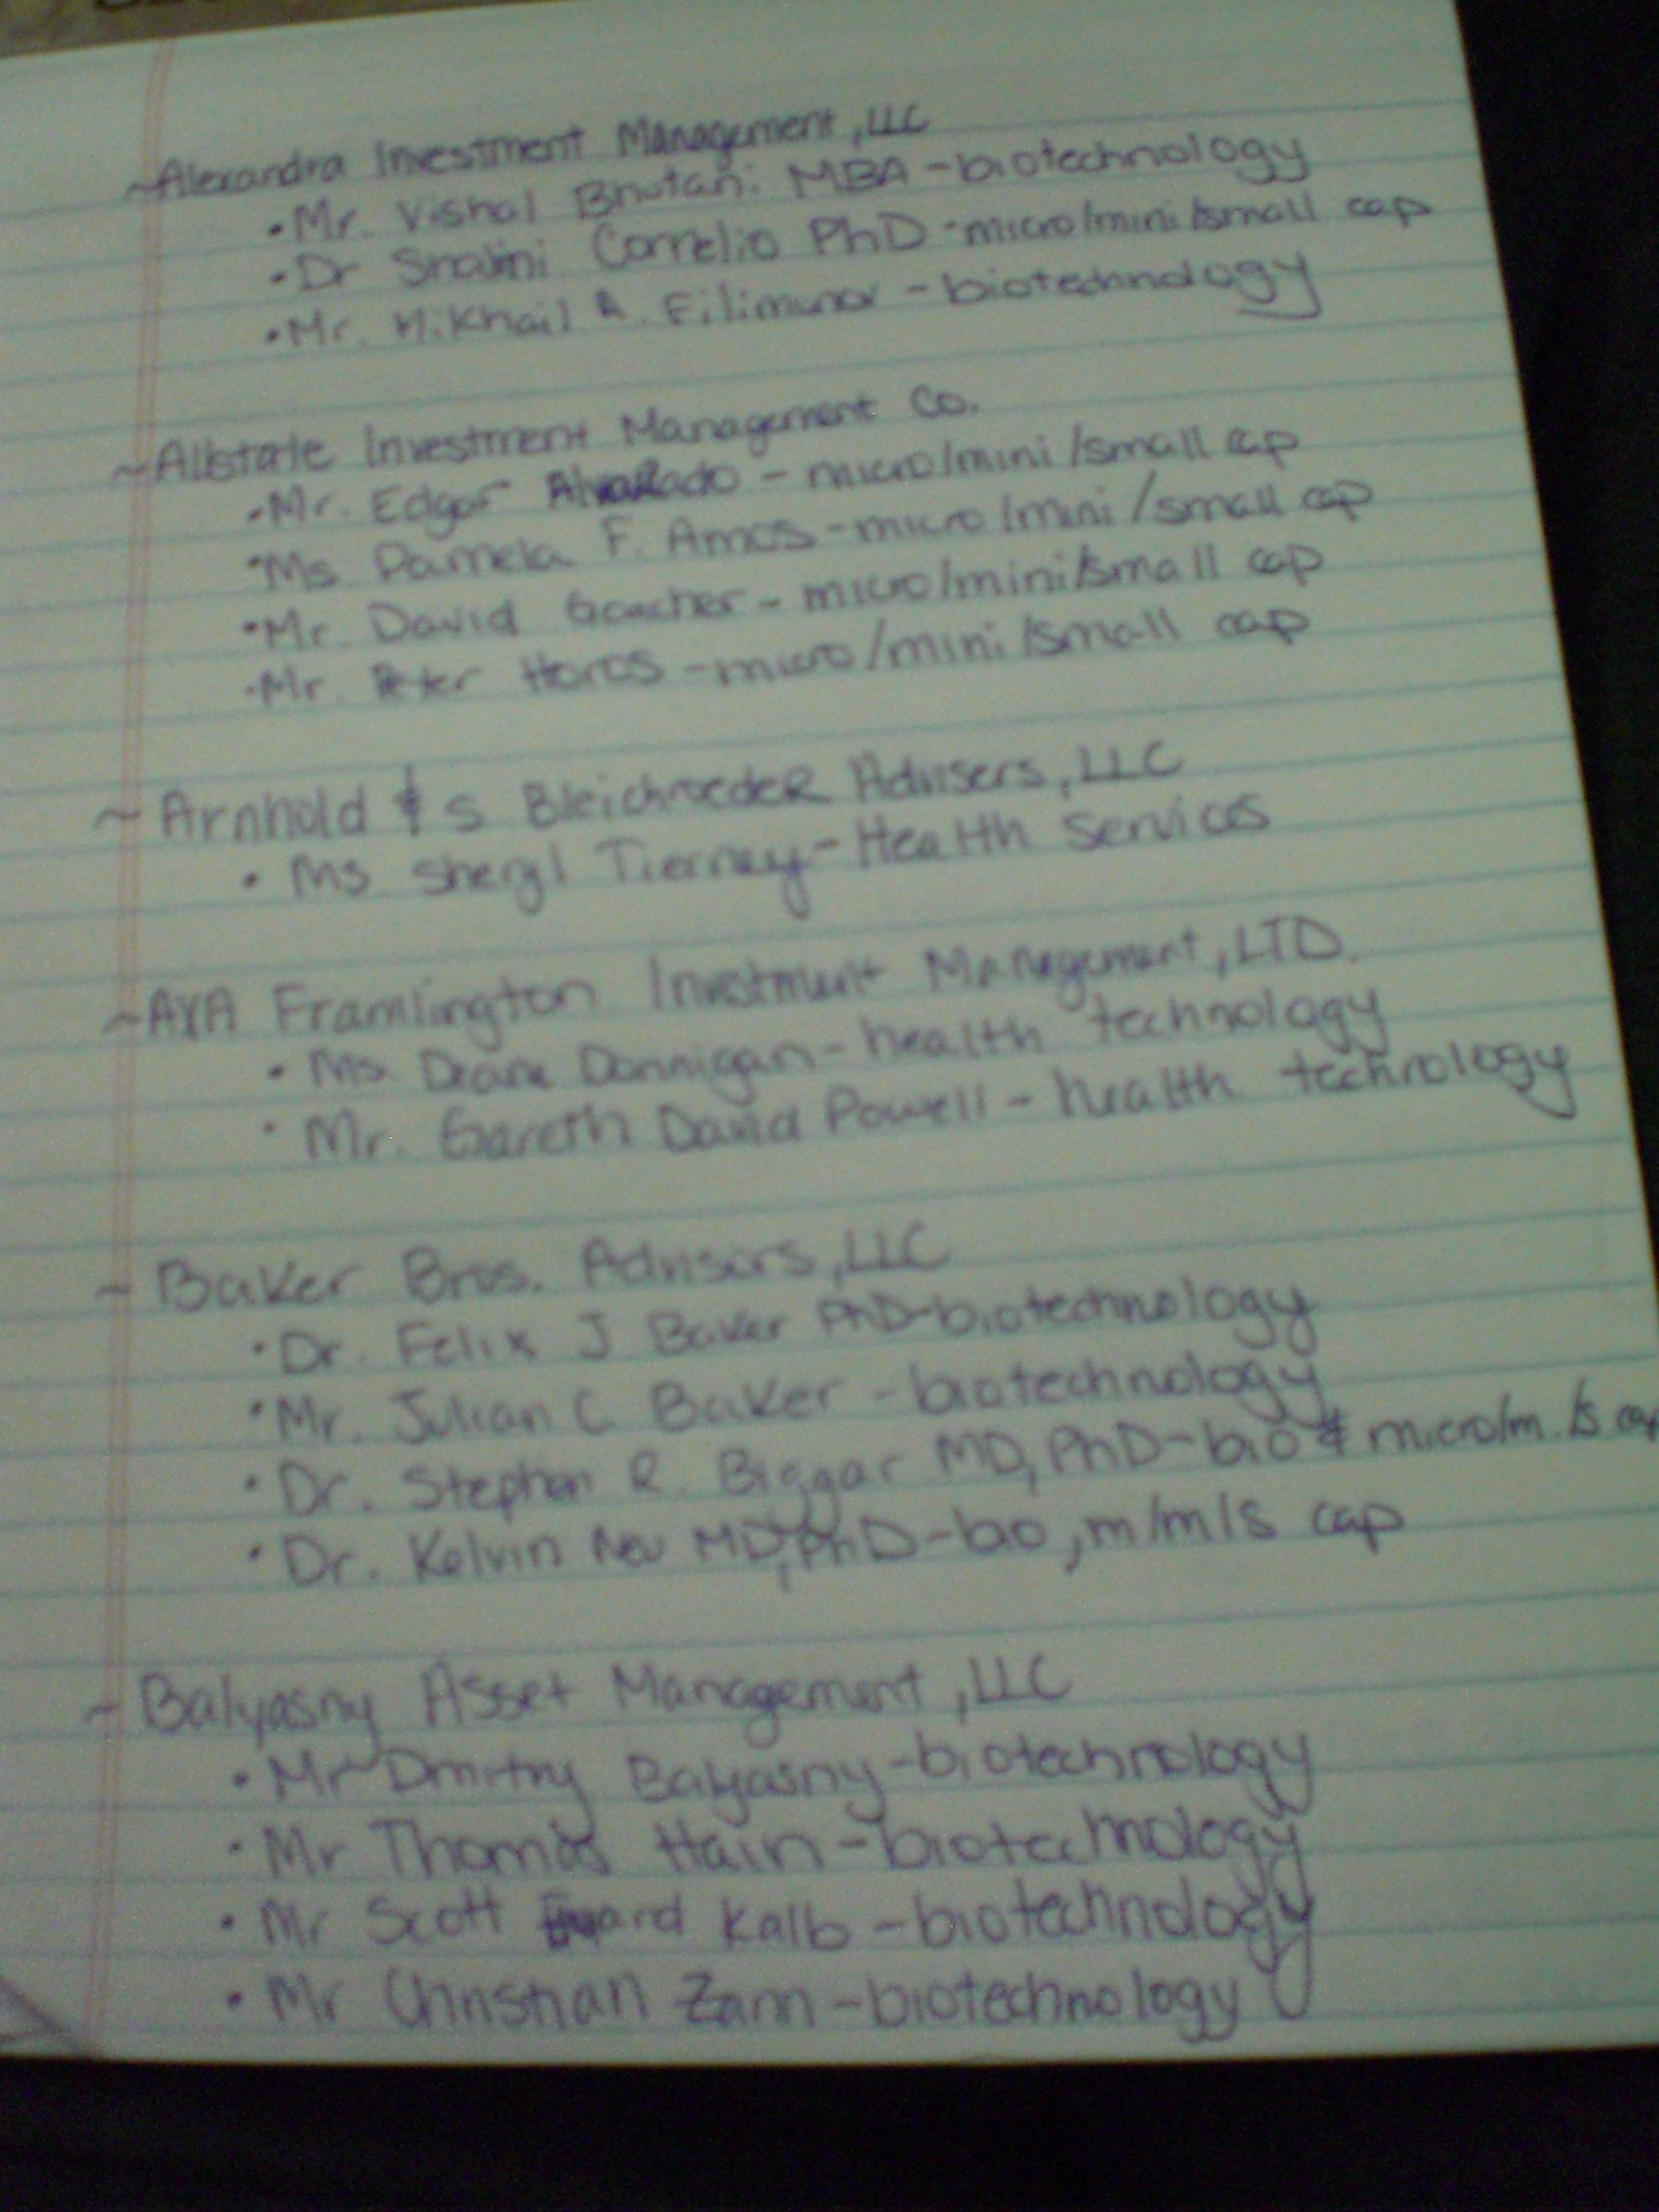 ~Alexandra Investment Management, LLC
•Mr. Vishal Bhutani MBA - biotechnology
•Dr Shalini Correlio PhD - micro/mini/small cap
•Mr. Mikhail A. Filimonov - biotechnology
~Allstate Investment Management Co.
•Mr. Edgar Alvarado - micro/mini/small cap
•Ms Pamela F. Amos - micro/mini/small cap
•Mr. David - micro/mini/small cap
•Mr. Peter Horos - micro/mini/small cap
~ Arnhold & S Bleichroeder Advisers, LLC
• Ms Sheryl Tierney - Health Services
~AXA Framlington Investment Management, LTD.
• Ms. Donnigan - health technology
• Mr. Gareth David Powell - health technology
~ Baker Bros. Advisors, LLC
•Dr. Felix J Baker PhD - biotechnology
•Mr. Julian C Baker - biotechnology
•Dr. Stephen R. Biggar MD, PhD - bio & micro/m./s cap
•Dr. Kelvin Neu MD, PhD - bio, m/m/s cap
~ Balyasny Asset Management, LLC
•Mr Dmitry Balyasny - biotechnology
•Mr Thomas Hain - biotechnology
•Mr Scott Kalb - biotechnology
•Mr Christian Zann - biotechnology